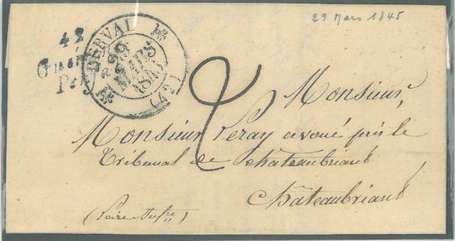 29 Mars 1845
42
DERVAL
29
MARS
1845
(42)
2
Monsieur,
Monsieur Leray avoué près le
Tribunal de Châteaubriant
Châteaubriant
(Loire Infre)